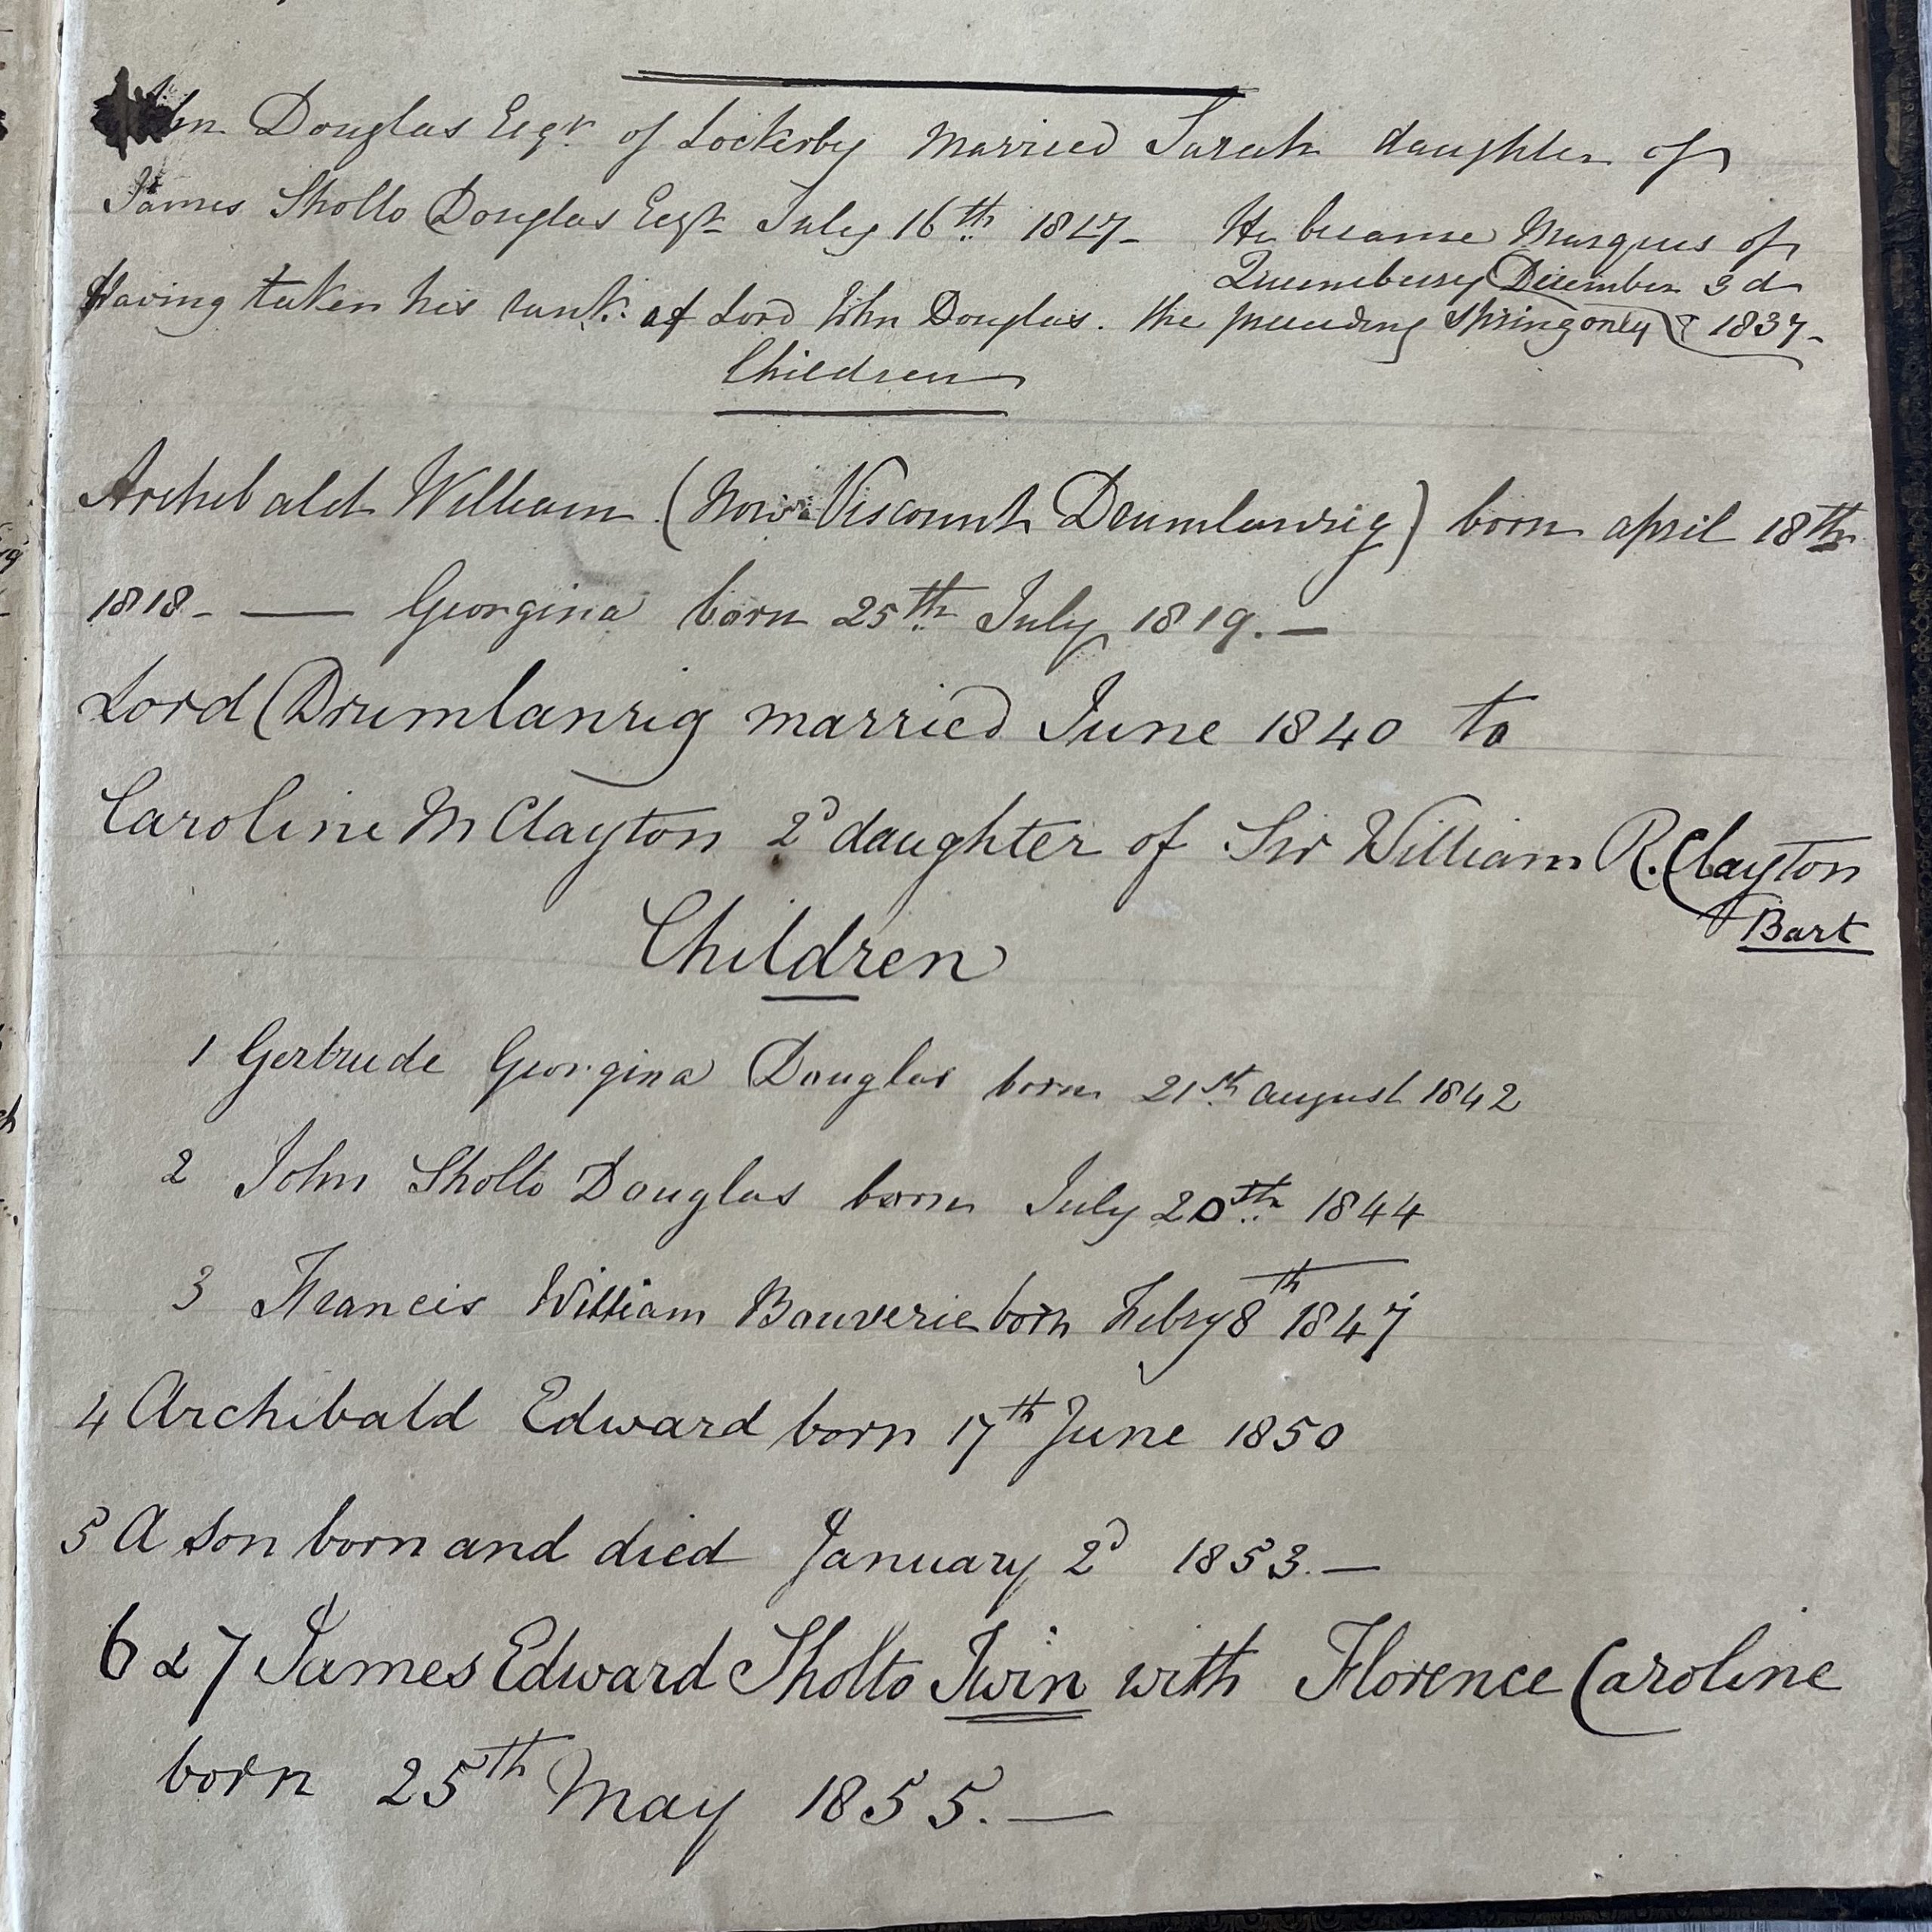 John Douglas Esqr of Lockerby married Sarah daughter of
James Sholto Douglas Esqr July 16th 1817 - He became Marquis of
Queensbury December 3d
Having taken his rank of Lord John Douglas. the preceeding spring only 1837 -
Children
Archibald William (now Viscount Drumlanrig) born april 18th
1818 - — Georgina born 25th July 1819. —
Lord Drumlanrig married June 1840 to
Caroline M Clayton 2d daughter of Sir William R. Clayton
Bart
Children
1 Gertrude Georgina Douglas born 21st august 1842
2 John Sholto Douglas born July 20th 1844
3 Francis William Bouverie born Febry 8th 1847
4 Archibald Edward born 17th June 1850
5 A son born and died January 2d 1853. —
6 & 7 James Edward Sholto Twin with Florence Caroline
born 25th May 1855. —